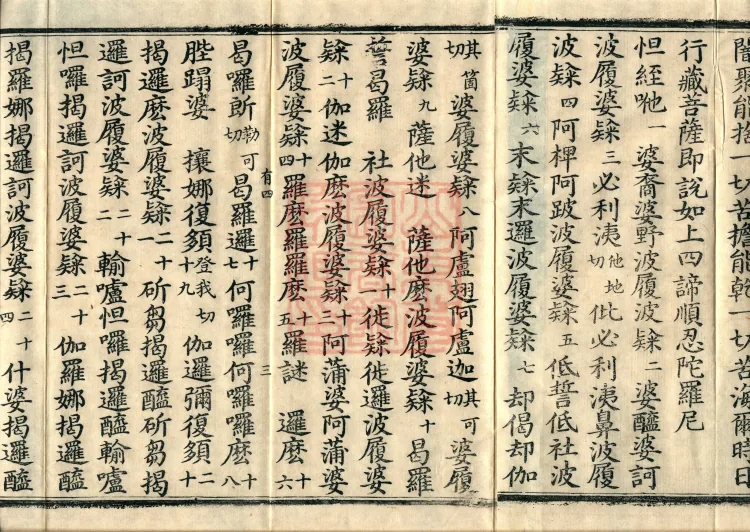 闇聚能揩一切苦擔能乾一切苦海爾時日
行藏菩薩即說如上四諦順忍陀羅尼
怛絰咃一 婆裔婆野波履波㝹二 婆醯婆訶
波履婆㝹三 必利洟他地切 仳必利洟鼻波履
波㝹四 阿椑阿跛波履婆㝹五 低誓低社波
履婆㝹六 末㝹末邏波履婆㝹七 却偈却伽
其箇切 婆履婆㝹八 阿盧翅阿盧迦其可切 婆履
婆㝹九 薩他迷 薩他麼波履婆㝹十 曷羅
誓曷羅 社波履婆㝹十一 徙㝹徙邏波履婆
㝹十二 伽迷伽麼波履婆㝹十三 阿蒲婆阿蒲婆
波履婆㝹十四 羅麼羅羅麼十五 羅謎 邏麼十六
曷囉斦勤可切 曷羅邏十七 何囉囉何囉囉麼十八
有四 三
䏶蹋婆 攘娜復㝹十九 登我切 伽邏彌復㝹二十
揭邏麼波履婆㝹二十一 斫芻揭邏醯斫芻揭
邏訶波履婆㝹二十二 輸嚧怛囉揭邏醯輸嚧
怛囉揭邏訶波履婆㝹二十三 伽羅娜揭邏醯
揭羅娜揭邏訶波履婆㝹二十四 什婆揭邏醯